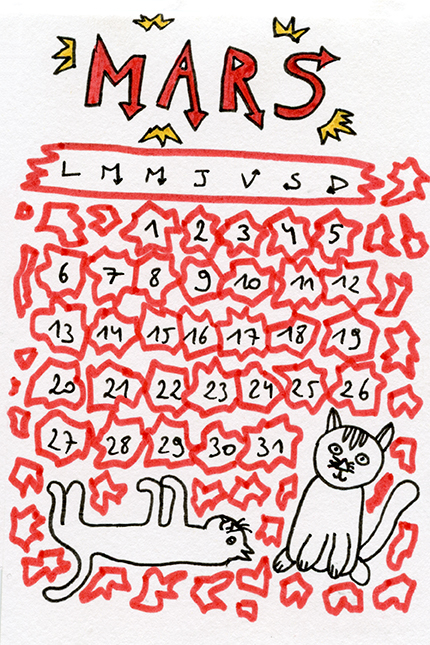 MARS
L M M J V S D
1 2 3 4 5
6 7 8 9 10 11 12
13 14 15 16 17 18 19
20 21 22 23 24 25 26
27 28 29 30 31